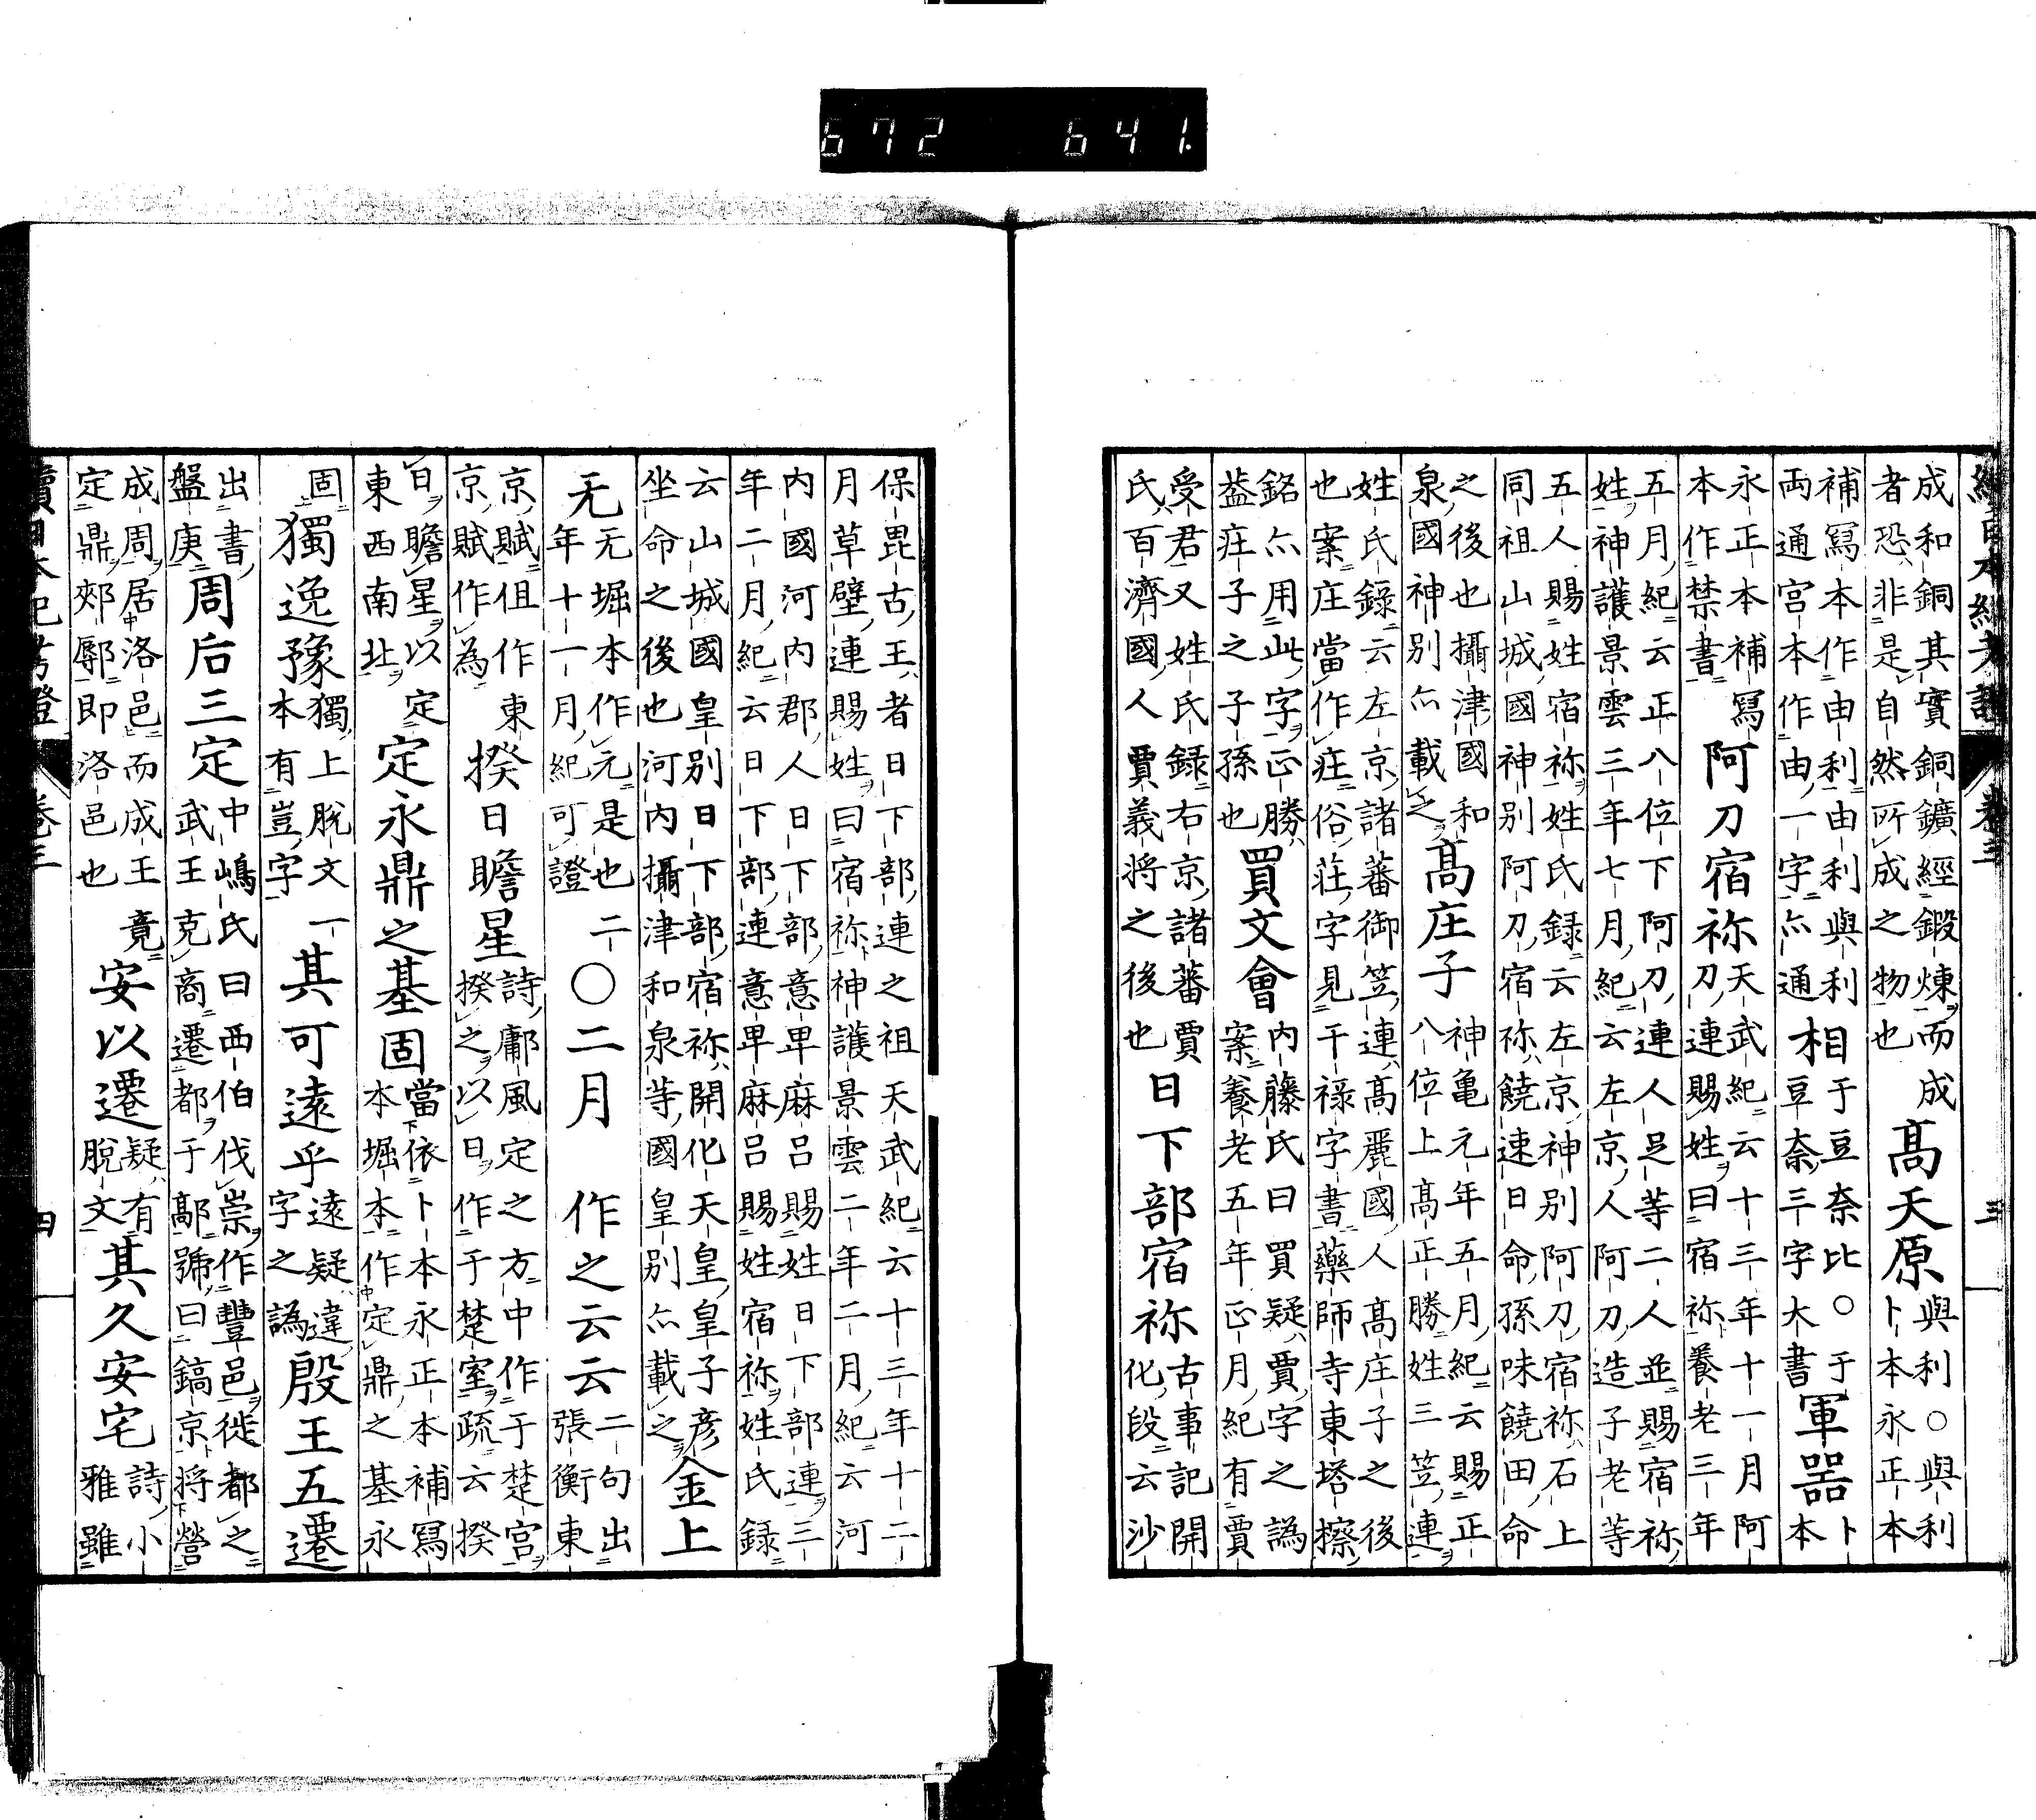 672 641.
續日本紀考證 卷三 三
成和銅其實銅鑛經鍛煉而成
者恐非是自然所成之物也
高天原
與利○與利
卜本永正本
補寫本作由利由利與利
両通宮本作由一字亦通
相
于豆奈比○于
豆奈三字大書
軍器
卜
本
永正本補寫
本作禁書
阿刀宿祢
天武紀云十三年十一月阿
刀連賜姓曰宿祢養老三年
五月紀云正八位下阿刀連人足等二人並賜宿祢
姓神護景雲三年七月紀云左京人阿刀造子老等
五人賜姓宿祢姓氏録云左京神别阿刀宿祢石上
同祖山城國神别阿刀宿祢饒速日命孫味饒田命
之後也攝津國和
泉國神别亦載之
高庄子
神亀元年五月紀云賜正
八位上高正勝姓三笠連
姓氏録云左京諸蕃御笠連高麗國人高庄子之後
也案庄當作㽵俗荘字見干禄字書藥師寺東塔檫
銘亦用此字正勝
葢㽵子之子孫也
買文會
内藤氏曰買疑賈字之譌
案養老五年正月紀有賈
受君又姓氏録右京諸蕃賈
氏百濟國人賈義将之後也
日下部宿祢
古事記開
化段云沙
保毘古王者日下部連之祖天武紀云十三年十二
月草壁連賜姓曰宿祢神護景雲二年二月紀云河
内國河内郡人日下部意卑麻呂賜姓日下部連三
年二月紀云日下部連意卑麻呂賜姓宿祢姓氏録
云山城國皇别日下部宿祢開化天皇皇子彦
坐命之後也河内攝津和泉等國皇别亦載之
金上
无
无堀本作元是也二
年十一月紀可證
○二月 作之云云
二句出
張衡東
京賦但作東
京賦作為
揆日瞻星
詩鄘風定之方中作于楚宫
揆之以日作于楚室疏云揆
日瞻星以定
東西南北
定永鼎之基固
當依卜本永正本補寫
本堀本作定鼎之基永
固
獨逸豫
獨上脱文一
本有豈字
其可遠乎
遠疑違
字之譌
殷王五遷
出書
盤庚
周后三定
中嶋氏曰西伯伐崇作豐邑徙都之
武王克商遷都于鄗號曰鎬京将營
成周居洛邑而成王竟
定鼎郟鄏即洛邑也
安以遷
疑有
脱文
其久安宅
詩小
雅雖
續日本紀考證 卷三 四